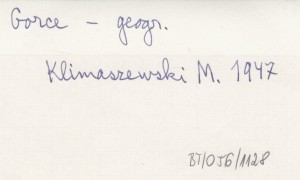 Gorce - geogr.
Klimaszewski M. 1947
BT/OJG/1128